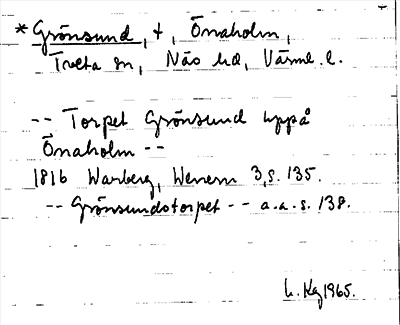 * Grönsund, t, Önaholm,
Tveta sn, Näs hd, Värml. l.
-- Torpet Grönsund uppå
Önaholm --
1816 Warberg, Wenern 3, s. 135.
-- Grönsundstorpet -- a.a.s. 138.
L. Kg 1965.